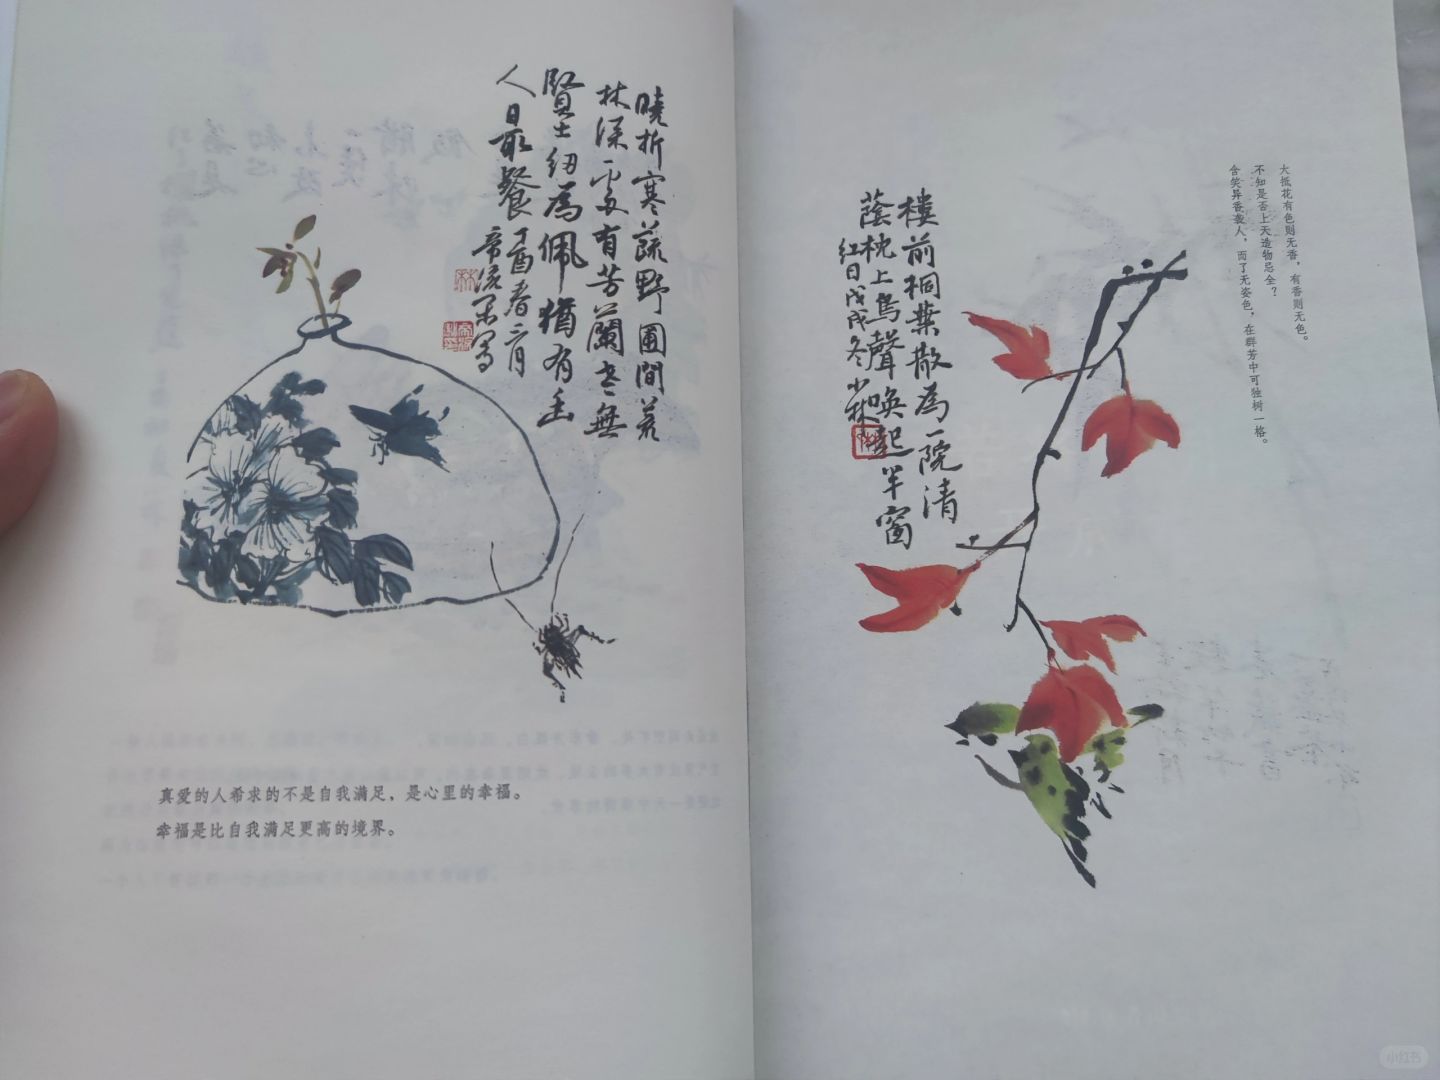 曉折寒蔬野圃間荒
林深處有芳蘭世無
賢士紉為佩猶有幽
人日最餐丁酉春二月
帝浚
真爱的人希求的不是自我满足，是心里的幸福。
幸福是比自我满足更高的境界。
大抵花有色则无香，有香则无色。
不知是否上天造物忌全？
含笑异香袭人，而了无姿色，在群芳中可独树一格。
樓前桐葉散為一院清
蔭枕上鳥聲喚起半窗
紅日戊戌冬少林
小红书